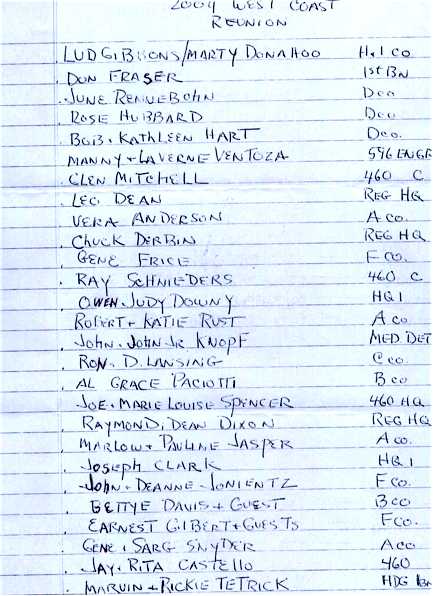 2004 WEST COAST
REUNION
LUD GIBBONS/MARTY DONAHOO H.1 CO
DON FRASER 1st BN
JUNE RENNEBOHN Dco
ROSE HUBBARD Dco
BOB + KATHLEEN HART Dco.
MANNY + LAVERNE VENTOZA 596 ENGR
GLEN MITCHELL 460 C
LEO DEAN REG HQ
VERA ANDERSON A co.
CHUCK DERBIN REG HQ
GENE FRICE F co.
RAY SCHNIEDERS 460 C
OWEN + JUDY DOWNY HQ 1
ROBERT + KATIE RUST A co
JOHN + JOHN JR KNOPF MED. DET
RON. D. LANSING C co
AL GRACE PACIOTTI B co
JOE + MARIE LOUISE SPENCER 460 HQ
RAYMOND, DEAN DIXON REG HQ
MARLOW + PAULINE JASPER A co.
JOSEPH CLARK HQ 1
JOHN + DEANNE JONIENTZ F co.
BETTYE DAVIS + GUEST B co
EARNEST GILBERT + GUESTS F co.
GENE + SARG SNYDER A co
JAY + RITA CASTELLO 460
MARVIN + RICKIE TETRICK HDG